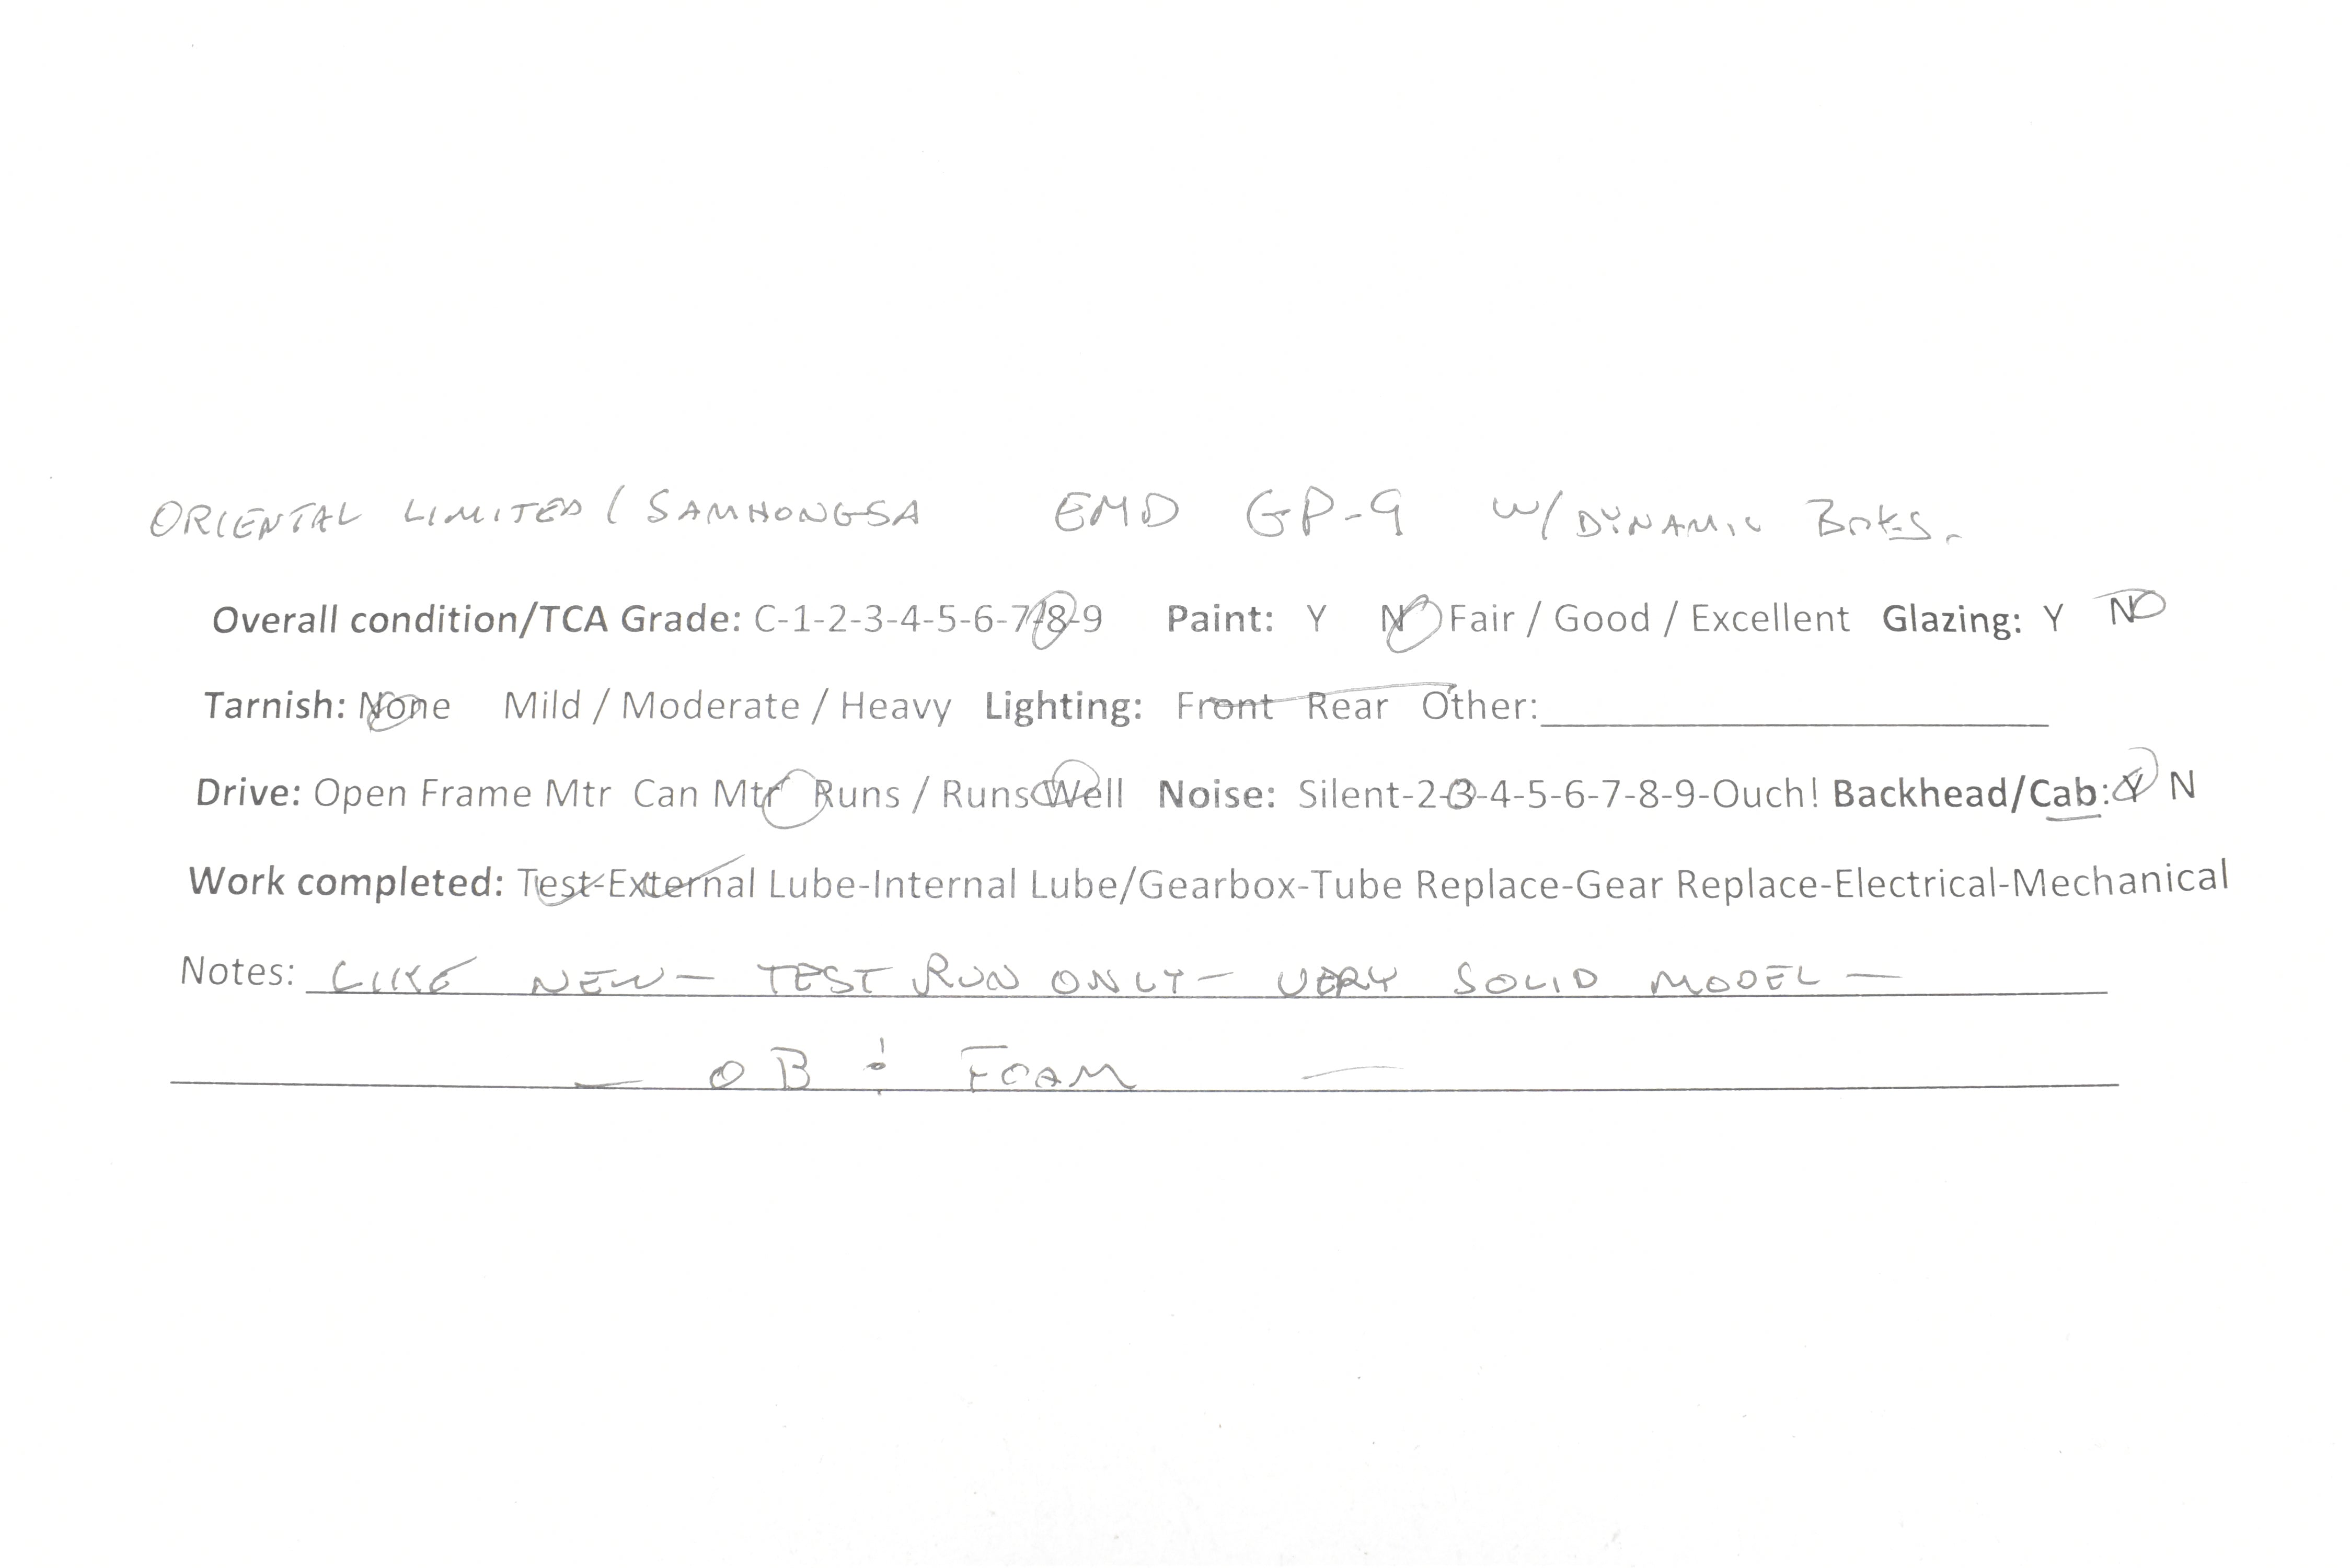 ORIENTAL LIMITED / SAMHONGSA EMD GP-9 W/DYNAMIC BRKS.
Overall condition/TCA Grade: C-1-2-3-4-5-6-7-8-9 Paint: Y N Fair / Good / Excellent Glazing: Y N
Tarnish: None Mild / Moderate / Heavy Lighting: Front Rear Other:
Drive: Open Frame Mtr Can Mtr Runs / Runs Well Noise: Silent-2-3-4-5-6-7-8-9-Ouch! Backhead/Cab: Y N
Work completed: Test-External Lube-Internal Lube/Gearbox-Tube Replace-Gear Replace-Electrical-Mechanical
Notes: LIKE NEW - TEST RUN ONLY - VERY SOLID MODEL -
- OB & FOAM -